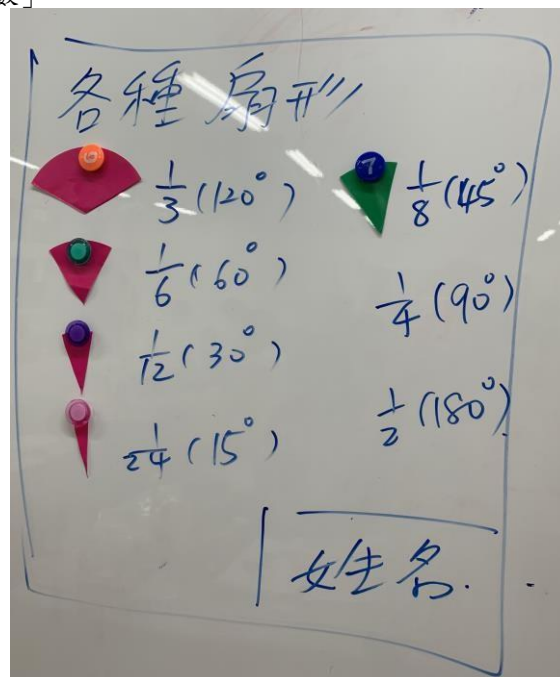 數」
各種扇形
6
1/3 (120°)
1/6 (60°)
1/12 (30°)
1/24 (15°)
7
1/8 (45°)
1/4 (90°)
1/2 (180°)
姓名.